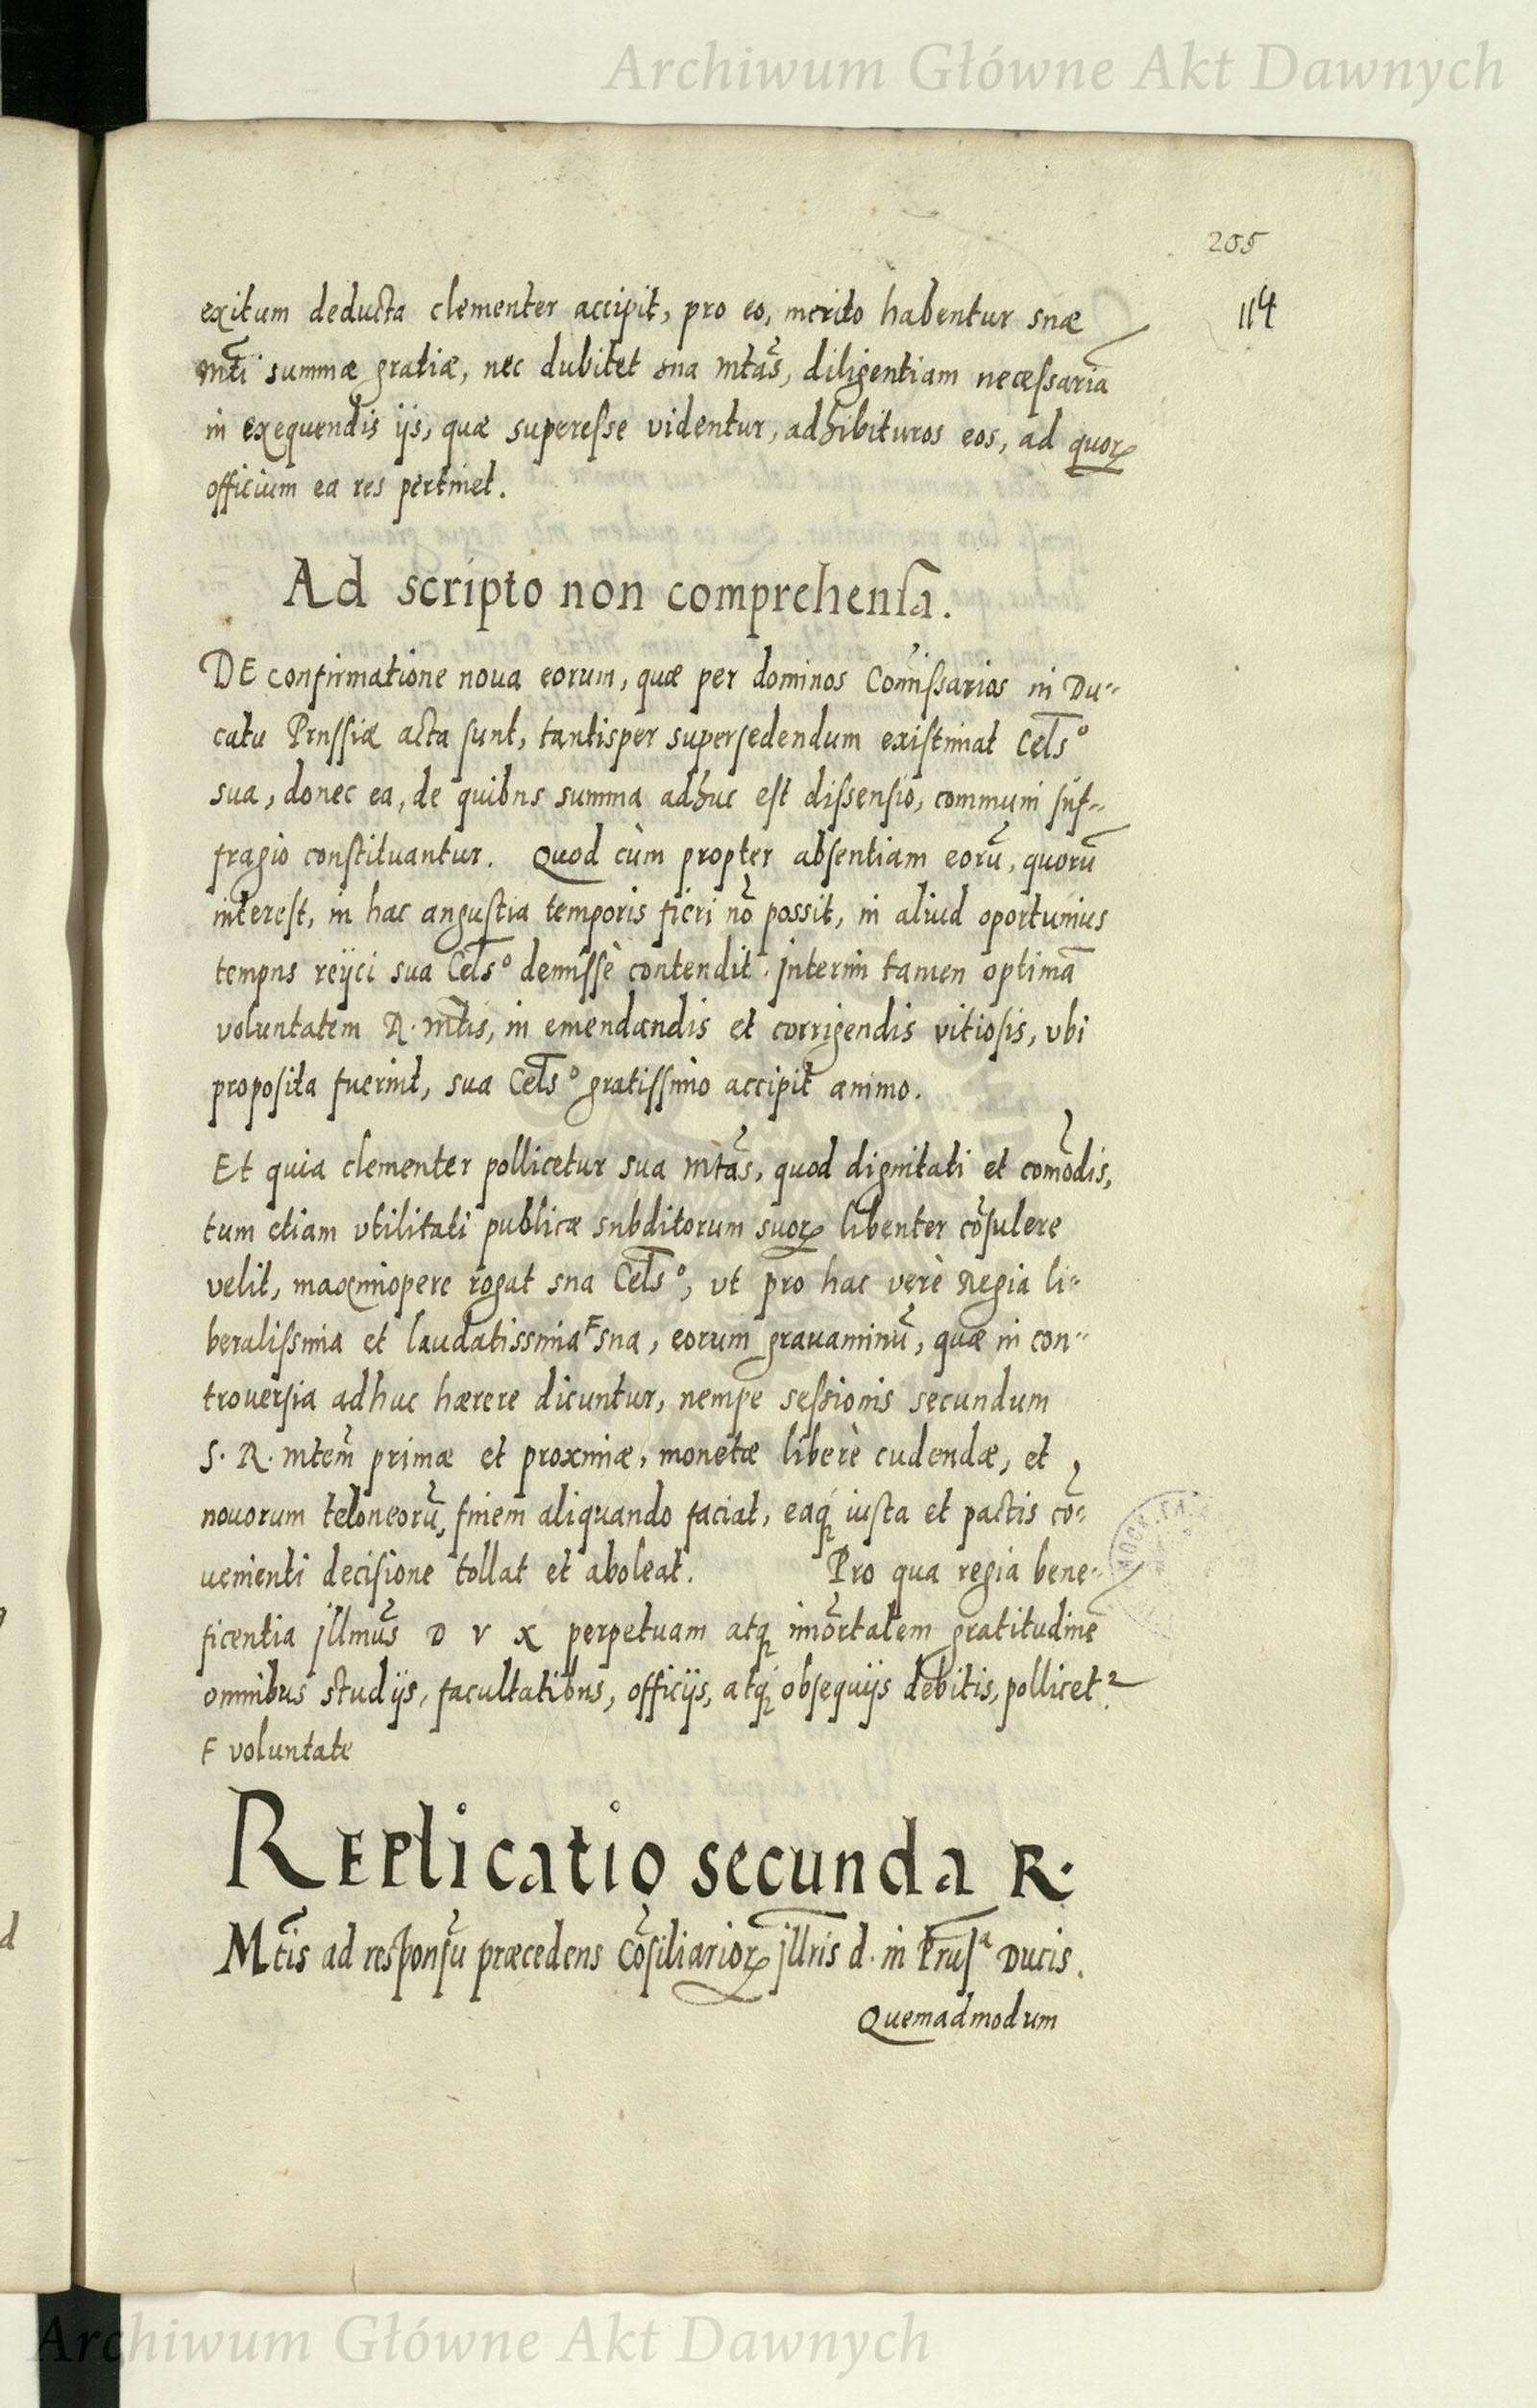 Archiwum Główne Akt Dawnych
205
114
exitum deducta clementer accipit, pro eo, merito habentur suæ
Mti summæ gratiæ, nec dubitet sua Mtas, diligentiam necæssariā
in exequendis ijs, quæ superesse videntur, adhibituros eos, ad quorꝝ
officium ea res pertinet.
Ad scripto non comprehensa.
DE confirmatione noua eorum, quæ per dominos Com̄issarios in Du-
catu Prussiæ acta sunt, tantisper supersedendum existimat Celsº
sua, donec ea, de quibus summa adhuc est dissensio, communi suf-
fragio constituantur. Quod cùm propter absentiam eorū, quorū
interest, in hac angustia temporis fieri nō possit, in aliud oportunius
tempus reijci sua Celsº demissè contendit. Interim tamen optimā
voluntatem R. Mtis, in emendandis et corrigendis vitiosis, vbi
proposita fuerint, sua Celsº gratissimo accipit animo.
Et quia clementer pollicetur sua Mtas, quod dignitati et com̄odis,
tum etiam vtilitati publicæ subditorum suorꝝ libenter cōsulere
velit, maximopere rogat sua Celsº, vt pro hac verè Regia li-
beralissima et laudatissima F sua, eorum grauaminū, quæ in con-
trouersia adhuc hærere dicuntur, nempe sessionis secundum
S. R. Mtem primæ et proximæ, monetæ liberè cudendæ, et
nouorum teloneorū, finem aliquando faciat, eaqꝫ iusta et pactis cō-
uenienti decisione tollat et aboleat. Pro qua regia bene-
ficentia Illmus D V X perpetuam atqꝫ im̄ortalem gratitudinē
omnibus studijs, facultatibus, officijs, atqꝫ obsequijs debitis, pollicet².
F voluntate
REPlicatio secunda R.
Mtis ad responsū præcedens Cōsiliariorꝝ Illris d. in Prusª Ducis.
Quemadmodum
Archiwum Główne Akt Dawnych